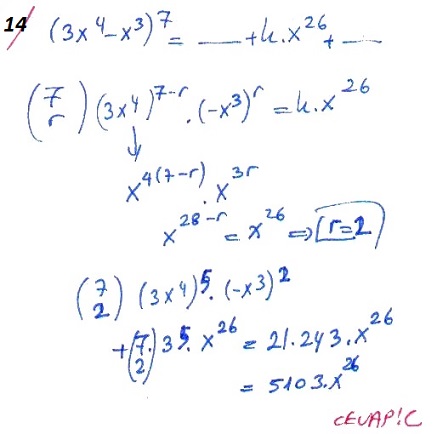 14 (3x⁴-x³)⁷ = __ + k.x²⁶ + __
(7 r) (3x⁴)⁷⁻ʳ . (-x³)ʳ = k.x²⁶
↓
x⁴⁽⁷⁻ʳ⁾ . x³ʳ
x²⁸⁻ʳ = x²⁶ ⇒ r=2
(7 2) (3x⁴)⁵. (-x³)²
+(7 2).3⁵. x²⁶ = 21.243.x²⁶
= 5103.x²⁶
CEVAP!C